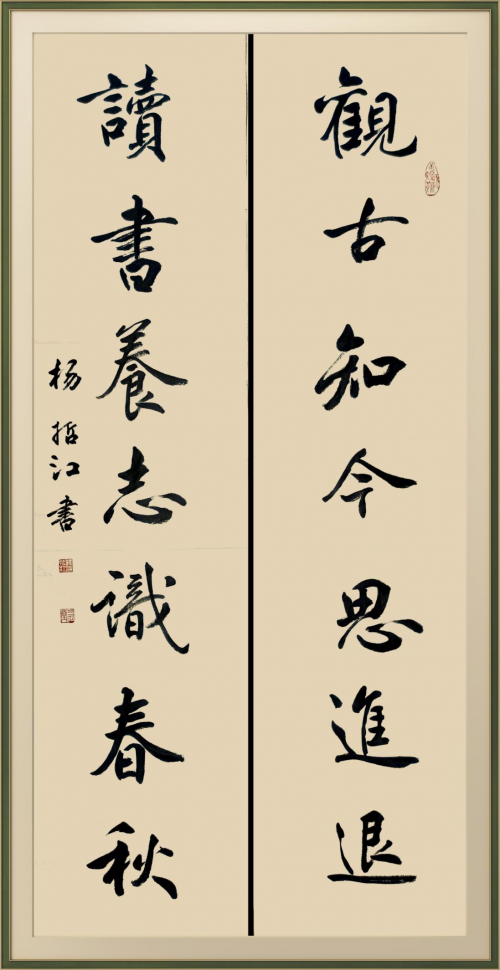 觀古知今思進退
讀書養志識春秋
杨哲江書